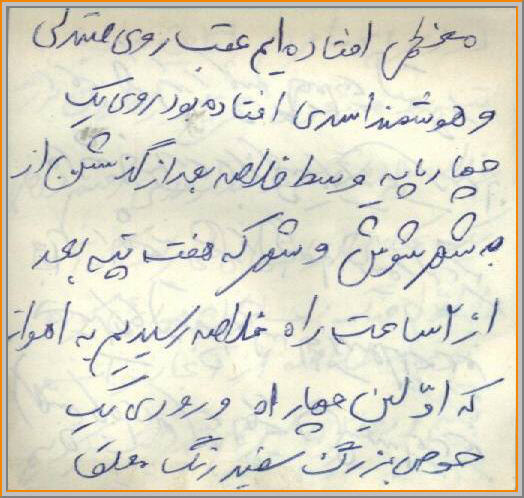 معظمی افتاده‌ایم عقب روی صندلی
و هوشمند اسدی افتاده بود روی یک
چهارپایه وسط خلاصه بعد از گذشتن از
شهر شوش و شهرک هفت تپه بعد
از ۲ ساعت راه خلاصه رسیدیم به اهواز
که اوّلین چهار راه ورودی یک
حوض بزرگ سفید رنگ